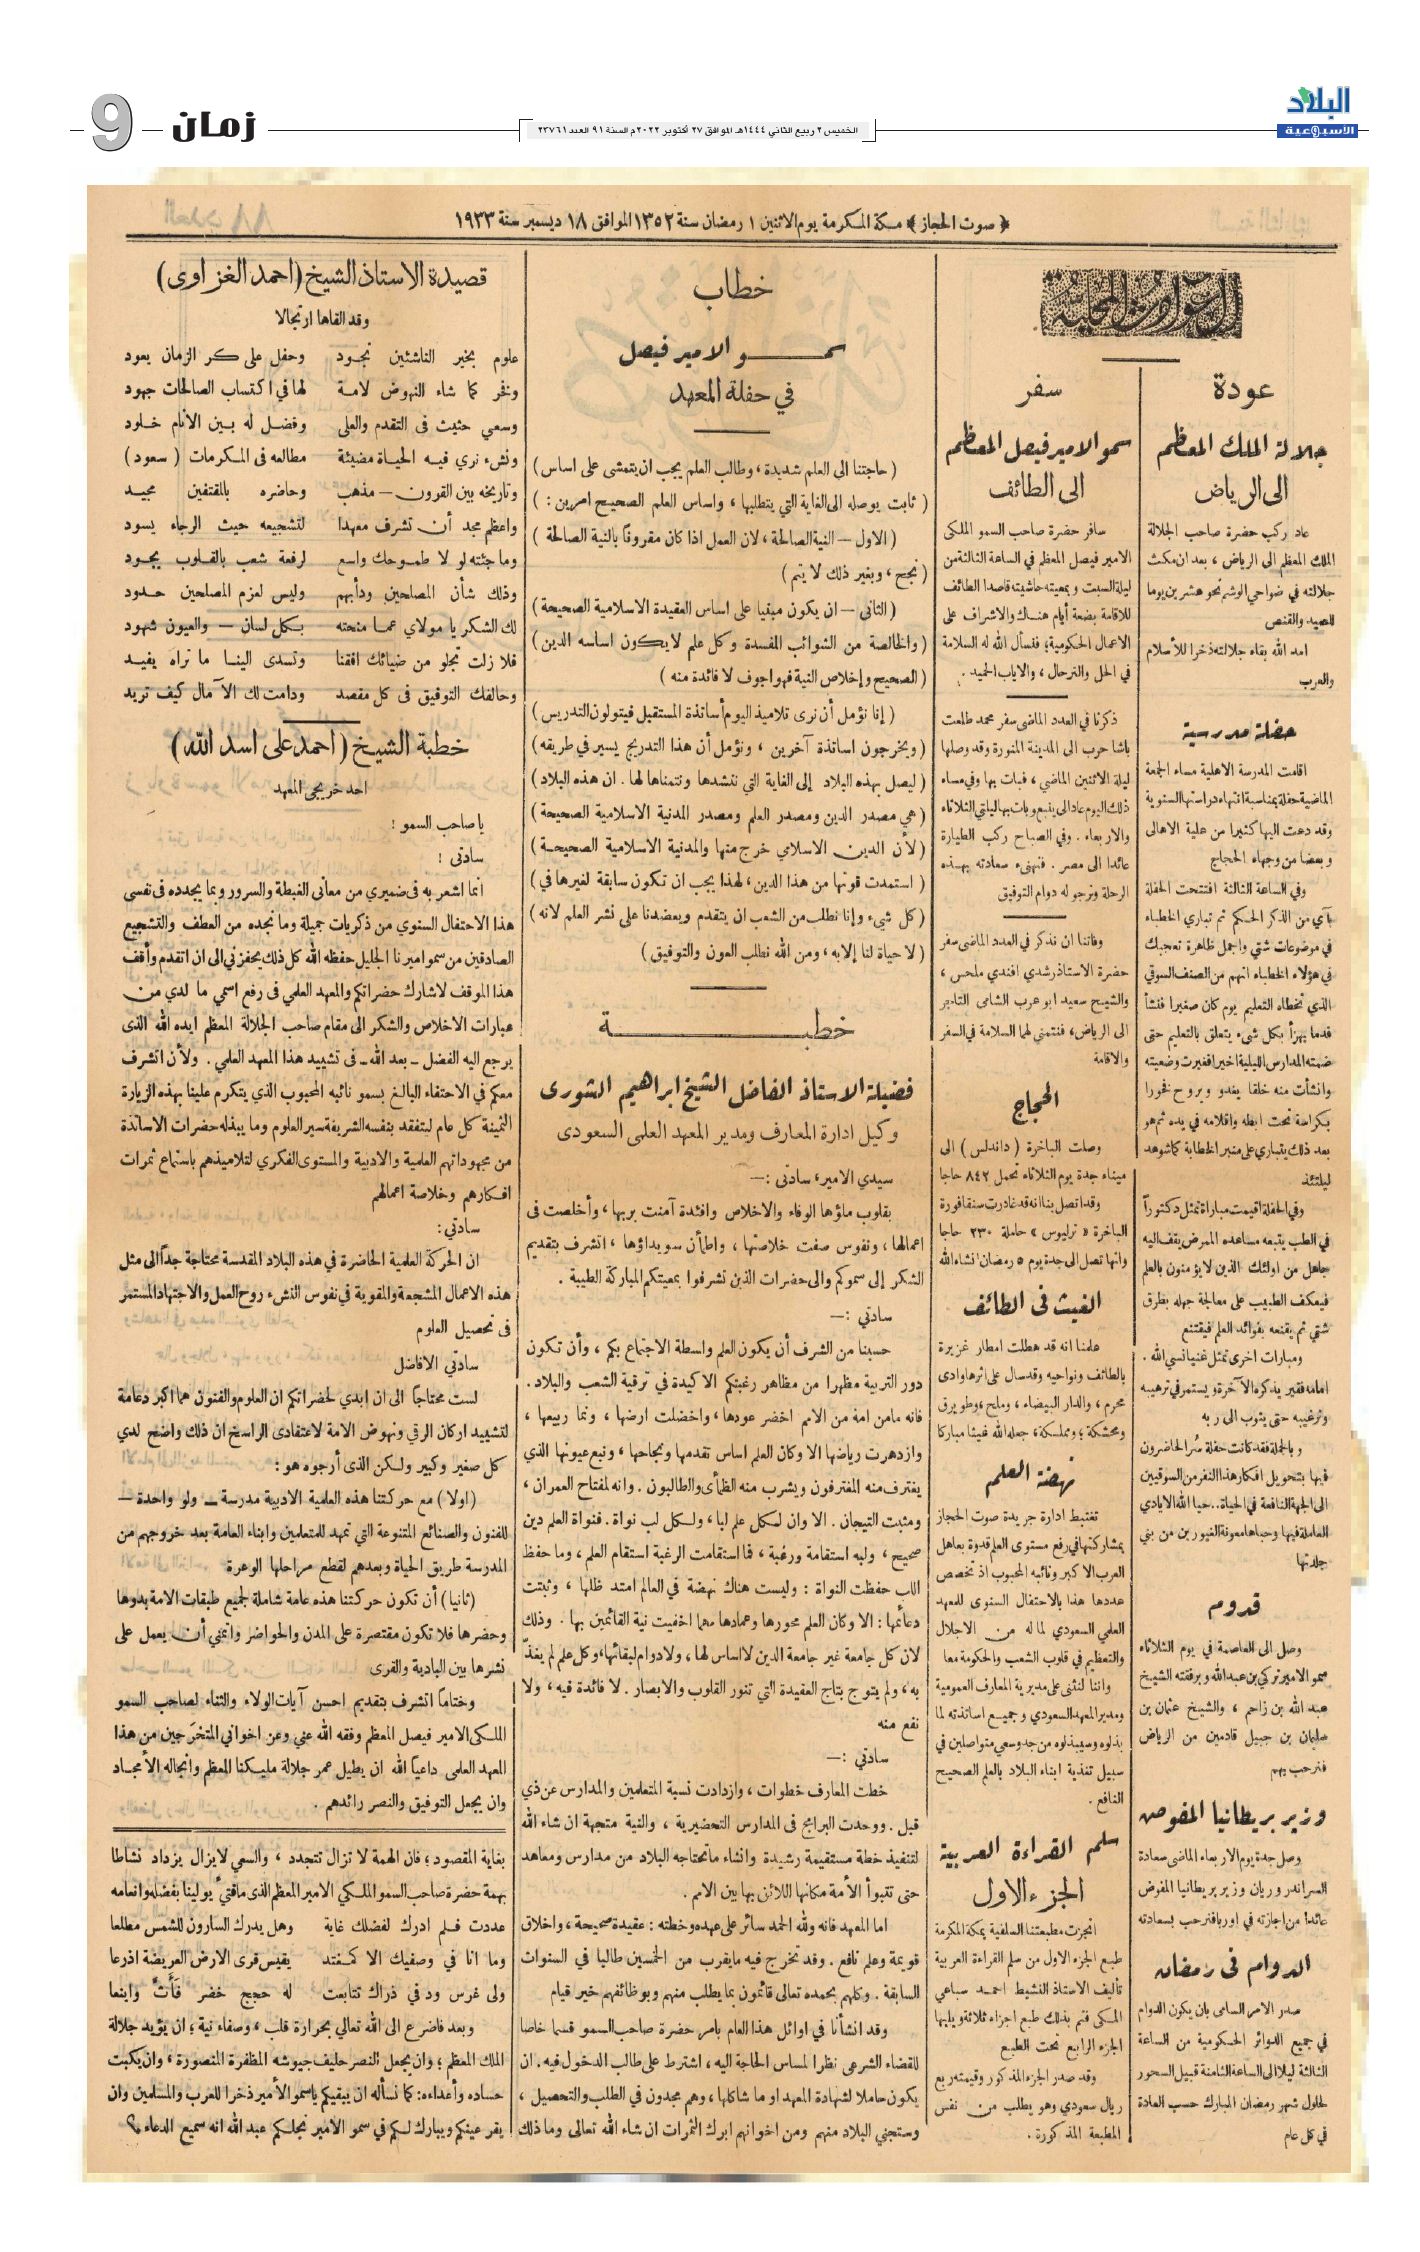 البلاد
الأسبوعية
الخميس ٢ ربيع الثاني ١٤٤٤هـ الموافق ٢٧ أكتوبر ٢٠٢٢م السنة ٩١ العدد ٢٣٧٦١
زمان
9
﴿ صوت الحجاز ﴾ مكة المكرمة يوم الاثنين ١ رمضان سنة ١٣٥٢ الموافق ١٨ ديسمبر سنة ١٩٣٣
الحوادث المحلية
عودة
جلالة الملك المعظم
الى الرياض
عاد ركب حضرة صاحب الجلالة
الملك المعظم الى الرياض ، بعد ان مكث
جلالته في ضواحي الوشم نحو عشرين يوما
للصيد والقنص
امد الله بقاء جلالته ذخرا للأسلام
والعرب
حفلة مدرسية
اقامت المدرسة الاهلية مساء الجمعة
الماضية حفلة بمناسبة انتهاء دراستها السنوية
وقد دعت اليها كثيرا من علية الاهالى
وبعضا من وجهاء الحجاج
وفي الساعة الثالثة افتتحت الحفلة
بآي من الذكر الحكيم ثم تبارى الخطباء
في موضوعات شتي واجمل ظاهرة تعجبك
في هؤلاء الخطباء انهم من الصنف السوقي
الذي تخطاه التعليم يوم كان صغيرا فنشأ
قدما يهزأ بكل شيء يتعلق بالتعليم حتى
ضمته المدارس الليلية اخيرا فغيرت وضعيته
وانشأت منه خلقا يغدو ويروح فخورا
بكراسة تحت ابطه واقلامه في يده ثم هو
بعد ذلك يتبارى على منبر الخطابة كما شوهد
ليلتئذ
وفي الحفلة اقيمت مباراة تمثل دكتوراً
في الطب يتبعه مساعده الممرض يقف اليه
جاهل من اولئك الذين لا يؤمنون بالعلم
فيعكف الطبيب على معالجة جهله بطرق
شتي ثم يقنعه بفوائد العلم فيقتنع
ومبارات اخرى تمثل غنيا نسي الله .
امامه فقير يذكره الآخرة ويستمر في ترهيبه
وترغيبه حتى يثوب الى ربه
وبالجملة فقد كانت حفلة سُر الحاضرون
فيها بتحويل افكار هذا النفر من السوقيين
الى الجهة النافعة في الحياة.. حيا الله الايادي
العاملة فيها وحباها معونة الغيورين من بني
جلدتها
قدوم
وصل الى العاصمة في يوم الثلاثاء
سمو الامير تركي بن عبد الله وبرفقته الشيخ
عبد الله بن زاحم ، والشيخ عثمان بن
سليمان بن جبيل قادمين من الرياض
فنرحب بهم
وزير بريطانيا المفوض
وصل جدة يوم الاربعاء الماضى سعادة
السر اندرو ريان وزير بريطانيا المفوض
عائدا من اجازته في اوربا فنرحب بسعادته
الدوام فى رمضان
صدر الامر السامى بان يكون الدوام
في جميع الدوائر الحكومية من الساعة
الثالثة ليلا الى الساعة الثامنة قبيل السحور
لحلول شهر رمضان المبارك حسب العادة
في كل عام
سفر
سمو الامير فيصل المعظم
الى الطائف
سافر حضرة صاحب السمو الملكى
الامير فيصل المعظم في الساعة الثالثة من
ليلة السبت وبمعيته حاشيته قاصدا الطائف
للاقامة بضعة أيام هناك والاشراف على
الاعمال الحكومية؛ فنسأل الله له السلامة
في الحل والترحال ، والاياب الحميد .
ذكرنا في العدد الماضى سفر محمد طلعت
باشا حرب الى المدينة المنورة وقد وصلها
ليلة الاثنين الماضي ، فبات بها وفي مساء
ذلك اليوم عاد الى ينبع وبات بها ليلتي الثلاثاء
والاربعاء . وفي الصباح ركب الطيارة
عائدا الى مصر . فنهنىء سعادته بهذه
الرحلة ونرجو له دوام التوفيق
وفاتنا ان نذكر في العدد الماضى سفر
حضرة الاستاذ رشدي افندي ملحس ،
والشيخ سعيد ابو عرب الشامى التاجر
الى الرياض، فنتمني لهما السلامة في السفر
والاقامة
الحجاج
وصلت الباخرة ( داندلس ) الى
ميناء جدة يوم الثلاثاء تحمل ٨٤٢ حاجا
وقد اتصل بنا انه قد غادرت سنقافورة
الباخرة « ترليوس » حاملة ٢٣٠ حاجا
وانها تصل الى جدة يوم ٥ رمضان انشاء الله
الغيث فى الطائف
علمنا انه قد هطلت امطار غزيرة
بالطائف ونواحيه وقد سال على اثرها وادى
محرم ، والدار البيضاء ، وملح، وطويرق
جعله الله غيثا مباركا
نهضة العلم
تغتبط ادارة جريدة صوت الحجاز
بمشاركتها في رفع مستوى العلم قدوة بعاهل
العرب الاكبر ونائبه المحبوب اذ تخصص
عددها هذا بالاحتفال السنوى للمعهد
العلمي السعودي لما له من الاجلال
والتعظيم في قلوب الشعب والحكومة معا
واننا لنثنى على مديرية المعارف العمومية
ومدير المعهد السعودي وجميع اساتذته لما
بذلوه وسيبذلوه من جد وسعي متواصلين في
سبيل تغذية ابناء البلاد بالعلم الصحيح
النافع .
سلم القراءة العربية
الجزء الاول
انجزت مطبعتنا السلفية بمكة المكرمة
طبع الجزء الاول من سلم القراءة العربية
تأليف الاستاذ النشيط احمد سباعي
المكى فتم بذلك طبع اجزاء ثلاثة ويليها
الجزء الرابع تحت الطبع
وقد صدر الجزء المذكور وقيمته ربع
ريال سعودي وهو يطلب من نفس
المطبعة المذكورة .
خطاب
سمو الامير فيصل
في حفلة المعهد
( حاجتنا الى العلم شديدة ، وطالب العلم يجب ان يتمشى على اساس )
( ثابت يوصله الى الغاية التي يتطلبها ، واساس العلم الصحيح امرين : )
( الاول — النية الصالحة ، لان العمل اذا كان مقرونًا بالنية الصالحة )
( نجح ، وبغير ذلك لا يتم )
( الثانى — ان يكون مبنيا على اساس العقيدة الاسلامية الصحيحة )
( والخالصة من الشوائب المفسدة وكل علم لا يكون اساسه الدين )
( الصحيح وإخلاص النية فهو اجوف لا فائدة منه )
( إنا نؤمل أن نرى تلاميذ اليوم أساتذة المستقبل فيتولون التدريس )
( ويخرجون اساتذة آخرين ، ونؤمل أن هذا التدريج يسير في طريقه )
( ليصل بهذه البلاد إلى الغاية التي ننشدها ونتمناها لها . ان هذه البلاد )
( هي مصدر الدين ومصدر العلم ومصدر المدنية الاسلامية الصحيحة )
( لأن الدين الاسلامي خرج منها والمدنية الاسلامية الصحيحة )
( استمدت قوتها من هذا الدين، لهذا يجب ان تكون سابقة لغيرها في )
( كل شيء وإنا نطلب من الشعب ان يتقدم ويعضدنا على نشر العلم لانه )
( لا حياة لنا إلا به ، ومن الله نطلب العون والتوفيق )
خطبة
فضيلة الاستاذ الفاضل الشيخ ابراهيم الشورى
وكيل ادارة المعارف ومدير المعهد العلمى السعودى
سيدي الامير، سادتى :—
بقلوب ملؤها الوفاء والاخلاص وافئدة آمنت بربها ، وأخلصت فى
اعمالها ، ونفوس صفت خلاصتها ، واطمأن سويداؤها ، اتشرف بتقديم
الشكر إلى سموكم والى حضرات الذين تشرفوا بمعيتكم المباركة الطيبة .
سادتي :—
حسبنا من الشرف أن يكون العلم واسطة الاجتماع بكم ، وأن تكون
دور التربية مظهرا من مظاهر رغبتكم الاكيدة في ترقية الشعب والبلاد.
فانه مامن امة من الامم اخضر عودها، واخضلت ارضها ، ونما ربيعها ،
وازدهرت رياضها الا وكان العلم اساس تقدمها ونجاحها ، ونبع عيونها الذي
يغترف منه المغترفون ويشرب منه الظمأى والطالبون . وانه لمفتاح العمران ،
ومثبت التيجان . الا وان لكل علم لبا، ولكل لب نواة . فنواة العلم دين
صحيح ، ولبه استقامة ورغبة ، فما استقامت الرغبة استقام العلم ، وما حفظ
اللب حفظت النواة : وليست هناك نهضة في العالم امتد ظلها ، وثبتت
دعائمها : الا وكان العلم محورها وعمادها مهما اخفيت نية القائمين بها . وذلك
لان كل جامعة غير جامعة الدين لا اساس لها ، ولا دوام لبقائها، وكل علم لم يغذّ
به ، ولم يتوج بتاج العقيدة التي تنور القلوب والابصار . لا فائدة فيه ، ولا
نفع منه
سادتي :—
خطت المعارف خطوات ، وازدادت نسبة المتعلمين والمدارس عن ذي
قبل . ووحدت البرامج فى المدارس التحضيرية ، والنية متجهة ان شاء الله
لتنفيذ خطة مستقيمة رشيدة وانشاء ما تحتاجه البلاد من مدارس ومعاهد
حتى تتبوأ الأمة مكانها اللائق بها بين الامم .
اما المعهد فانه ولله الحمد سائر على عهده وخطته : عقيدة صحيحة ، واخلاق
قويمة وعلم نافع . وقد تخرج فيه ما يقرب من الخمسين طالبا في السنوات
السابقة . وكلهم بحمده تعالى قائمون بما يطلب منهم وبوظائفهم خير قيام
وقد انشأنا في اوائل هذا العام بامر حضرة صاحب السمو قسما خاصا
للقضاء الشرعى نظرا لمساس الحاجة اليه ، اشترط على طالب الدخول فيه . ان
يكون حاملا لشهادة المعهد او ما شاكلها ، وهم مجدون في الطلب والتحصيل ،
وستجني البلاد منهم ومن اخوانهم ابرك الثمرات ان شاء الله تعالى وما ذلك
قصيدة الاستاذ الشيخ (احمد الغزاوى)
وقد القاها ارتجالا
علوم بخير الناشئين تجود وحفل على كر الزمان يعود
وفخر كما شاء النهوض لامة لها في اكتساب الصالحات جهود
وسعي حثيث فى التقدم والعلى وفضل له بين الانام خلود
ونشء نري فيه الحياة مضيئة مطالعه فى المكرمات ( سعود )
وتاريخه بين القرون — مذهب وحاضره بالمقتفين مجيد
واعظم مجد أن تشرف معهدا لتشجيعه حيث الرجاء يسود
وما جئته لو لا طموحك واسع لرفعة شعب بالقلوب يجود
وذلك شأن المصلحين ودأبهم وليس لعزم المصلحين حدود
لك الشكر يا مولاي عما منحته بكل لسان — والعيون شهود
فلا زلت تجلو من ضيائك افقنا وتسدى الينا ما تراه يفيد
وحالفك التوفيق فى كل مقصد ودامت لك الآمال كيف تريد
خطبة الشيخ (احمد على اسد الله)
احد خريجى المعهد
يا صاحب السمو !
سادتى !
انما اشعر به فى ضميري من معانى الغبطة والسرور وبما يجدده فى نفسى
هذا الاحتفال السنوي من ذكريات جميلة وما نجده من العطف والتشجيع
الصادقين من سمو اميرنا الجليل حفظه الله كل ذلك يحفزني الى ان اتقدم وأقف
هذا الموقف لاشارك حضراتكم والمعهد العلمي في رفع اسمي ما لدي من
عبارات الاخلاص والشكر الى مقام صاحب الجلالة المعظم ايده الله الذى
يرجع اليه الفضل ــ بعد الله ــ فى تشييد هذا المعهد العلمي . ولأن اتشرف
معكم في الاحتفاء البالغ بسمو نائبه المحبوب الذي يتكرم علينا بهذه الزيارة
الثمينة كل عام ليتفقد بنفسه الشريفة سير العلوم وما يبذله حضرات الاساتذة
من مجهوداتهم العلمية والادبية والمستوى الفكري لتلاميذهم باستماع ثمرات
افكارهم وخلاصة اعمالهم
سادتي:
ان الحركة العلمية الحاضرة في هذه البلاد المقدسة محتاجة جداً الى مثل
هذه الاعمال المشجعة والمقوية في نفوس النشء روح العمل والاجتهاد المستمر
فى تحصيل العلوم
سادتي الافاضل
لست محتاجا الى ان ابدي لحضراتكم ان العلوم والفنون هما اكبر دعامة
لتشييد اركان الرقي ونهوض الامة لاعتقادى الراسخ ان ذلك واضح لدي
كل صغير وكبير ولكن الذى أرجوه هو :
(اولا) مع حركتنا هذه العلمية الادبية مدرسة ــ ولو واحدة —
للفنون والصنائع المتنوعة التي تمهد للمتعلمين وابناء العامة بعد خروجهم من
المدرسة طريق الحياة وبعدهم لقطع مراحلها الوعرة
(ثانيا) أن تكون حركتنا هذه عامة شاملة لجميع طبقات الامة بدوها
وحضرها فلا تكون مقتصرة على المدن والحواضر واتمني أن يعمل على
نشرها بين البادية والقرى
وختاما اتشرف بتقديم احسن آيات الولاء والثناء لصاحب السمو
الملكى الامير فيصل المعظم وفقه الله عني وعن اخواني المتخرجين من هذا
المعهد العلمى داعياً الله ان يطيل عمر جلالة مليكنا المعظم وانجاله الأمجاد
وان يجعل التوفيق والنصر رائدهم .
بغاية المقصود ؛ فان الهمة لا تزال تتجدد ، والسعي لا يزال يزداد نشاطا
بهمة حضرة صاحب السمو الملكي الامير المعظم الذى مافتئ يولينا بفضله وانعامه
عددت فلم ادرك لفضلك غاية وهل يدرك السارون للشمس مطلعا
وما انا في وصفيك الا كمغتد يقيس قرى الارض العريضة اذرعا
ولى غرس ود في ذراك تتابعت له حجج خضر فَأَثَّ واينعا
وبعد فاضرع الى الله تعالي بحرارة قلب ، وصفاء نية ؛ ان يؤيد جلالة
الملك المعظم ؛ وان يجعل النصر حليف جيوشه المظفرة المنصورة ، وان يكبت
حساده وأعداءه: كما نسأله ان يبقيكم ياسمو الأمير ذخرا للعرب والمسلمين وان
يقر عينكم ويبارك لكم في سمو الأمير نجلكم عبد الله انه سميع الدعاء ؟